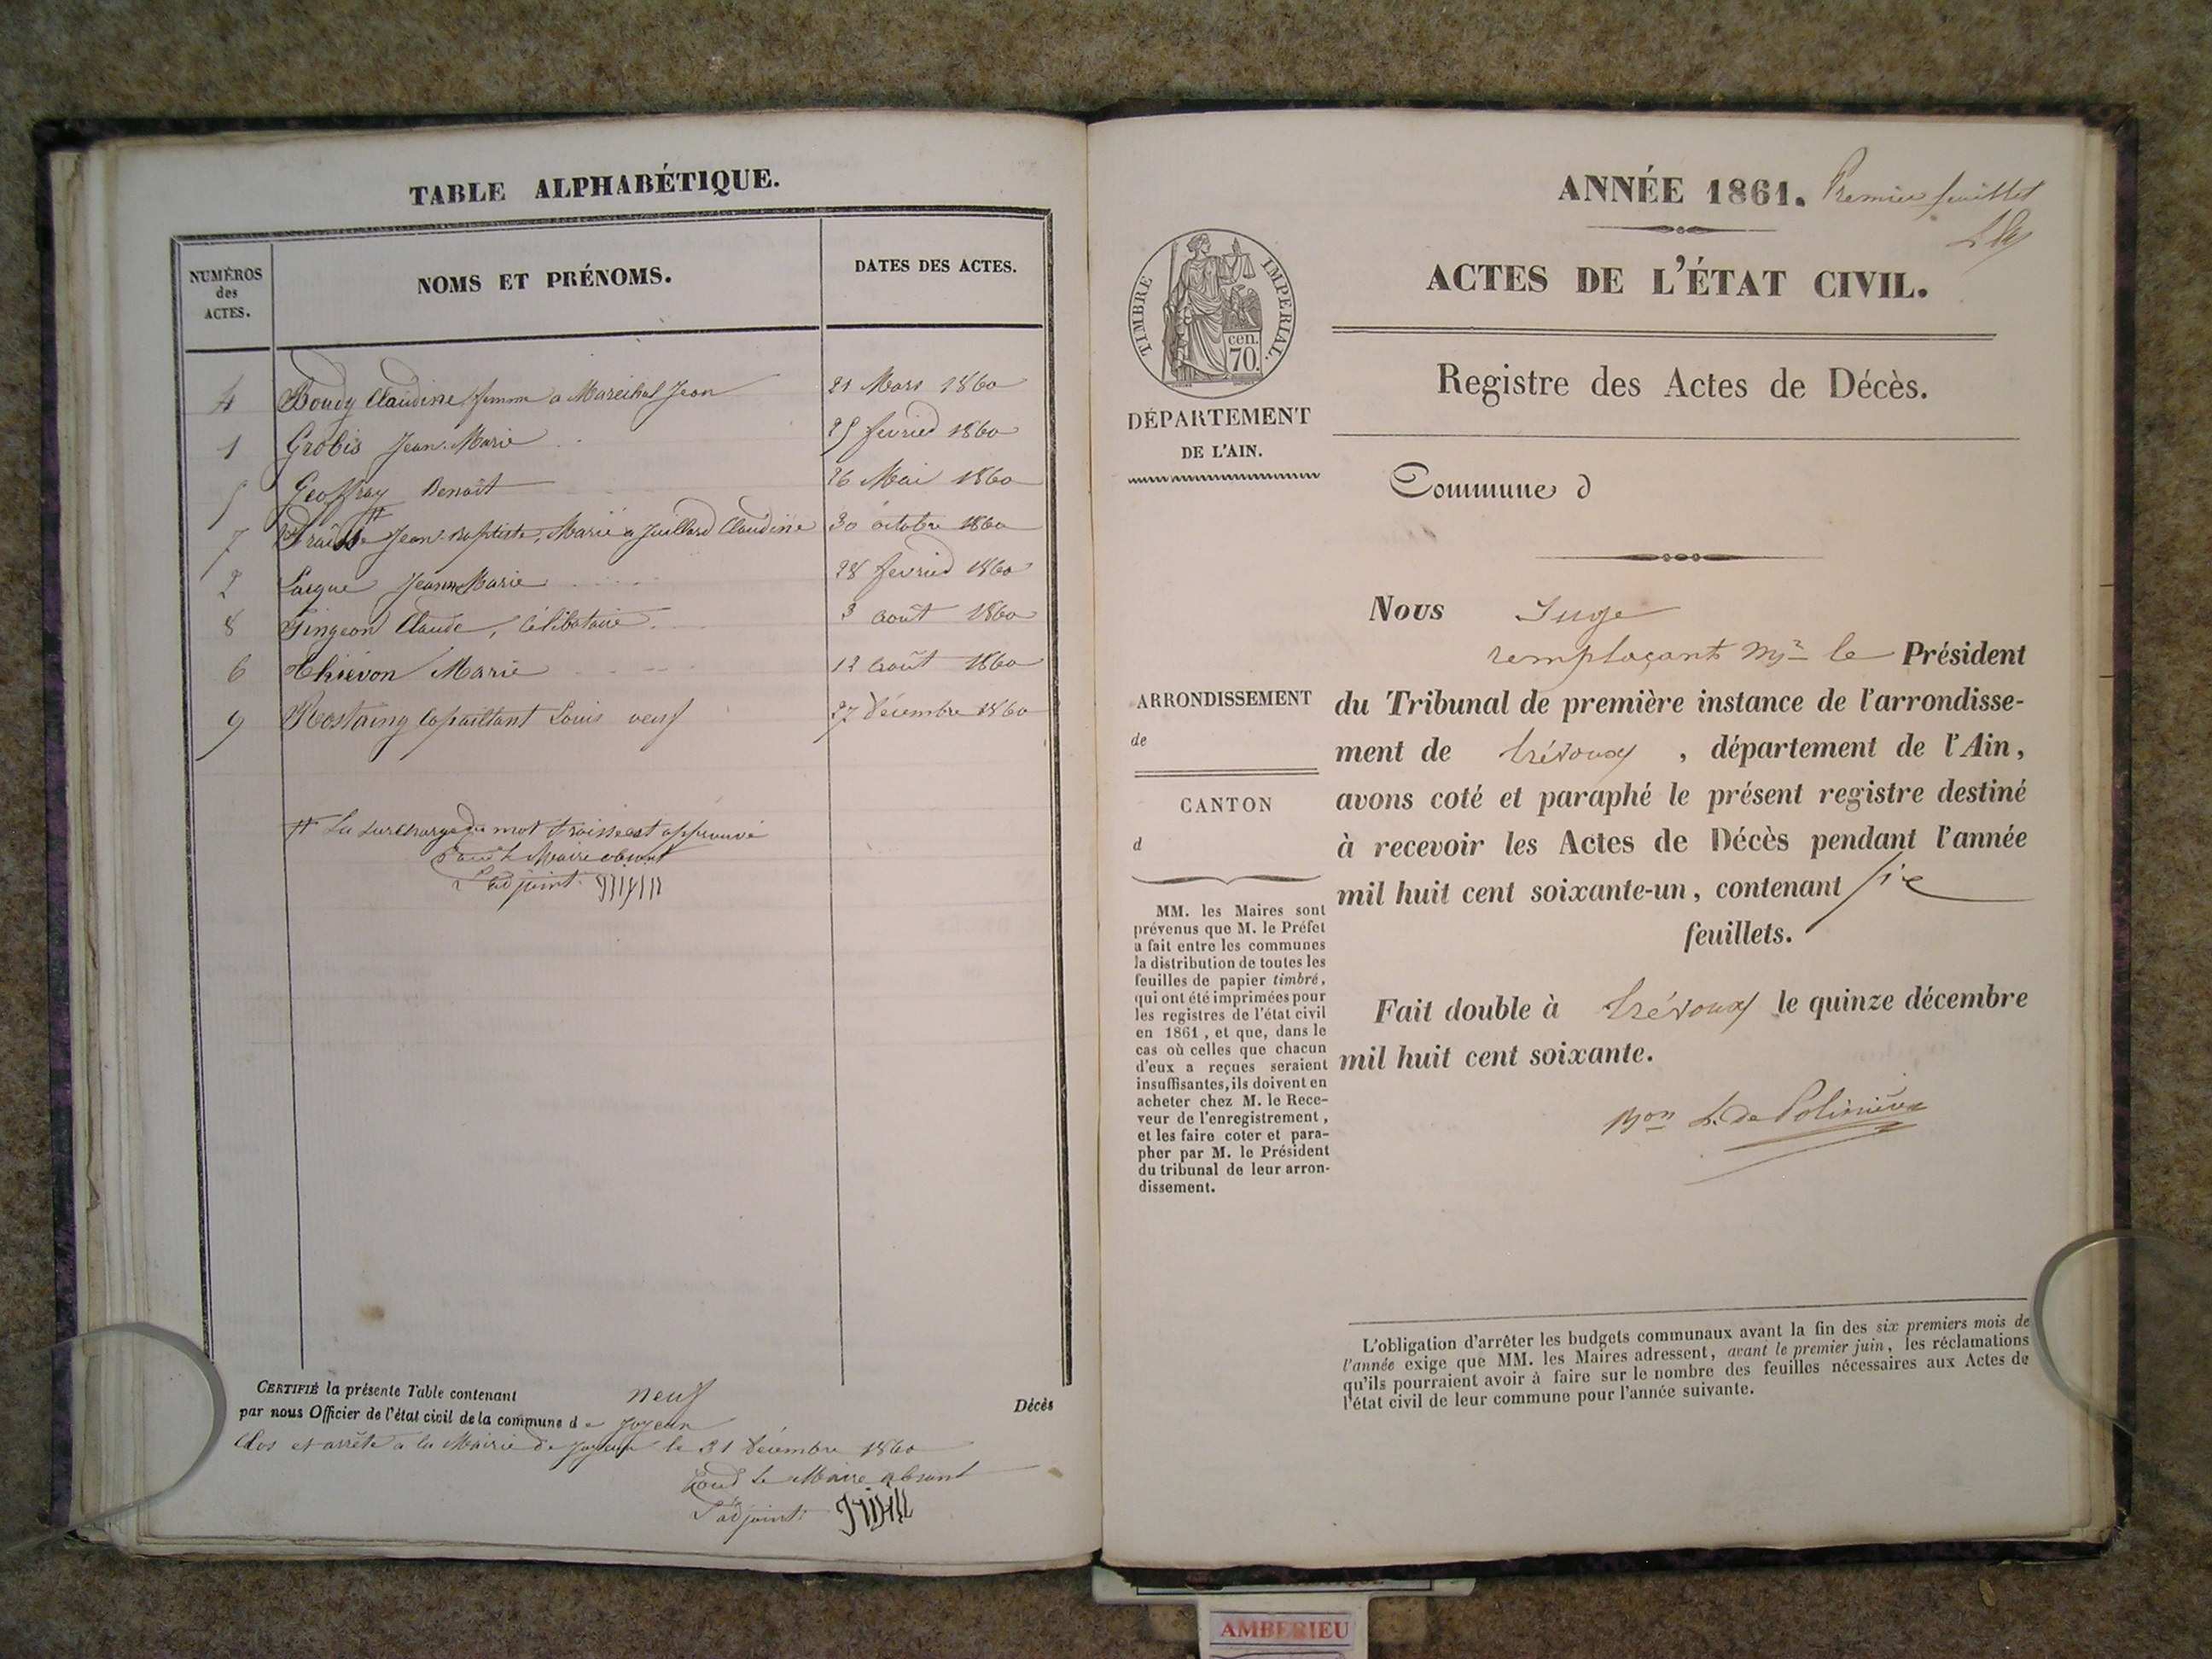 TABLE ALPHABÉTIQUE.
NUMÉROS des ACTES.
NOMS ET PRÉNOMS.
DATES DES ACTES.
4 Boudy Claudine femme a Marechal Jean 21 Mars 1860
1 Grobis Jean-Marie 25 fevrier 1860
5 Geoffray Benoît 26 Mai 1860
7 Jean-Baptiste, Marié a Juillard Claudine 30 octobre 1860
2 Largue Jeanne Marie 28 fevrier 1860
8 Tingeon Claude, Célibataire 3 août 1860
6 Thiévon Marie 12 août 1860
9 Rostaing Capaillant Louis veuf 27 Décembre 1860
La surcharge du mot est approuvé
Pour le Maire absent
L'adjoint
CERTIFIÉ la présente Table contenant neuf Décès
par nous Officier de l'état civil de la commune de Joyeux
Clos et arrêté a la Mairie de Joyeux le 31 Décembre 1860
Pour le Maire absent
L'adjoint:
ANNÉE 1861. Premier feuillet
ACTES DE L'ÉTAT CIVIL.
TIMBRE IMPERIAL.
cen.
70.
Registre des Actes de Décès.
DÉPARTEMENT
DE L'AIN.
Commune d
Nous Juge
remplaçant Mr le Président
ARRONDISSEMENT
de
du Tribunal de première instance de l'arrondisse-
ment de Trévoux, département de l'Ain,
CANTON
d
avons coté et paraphé le présent registre destiné
à recevoir les Actes de Décès pendant l'année
mil huit cent soixante-un, contenant six
feuillets.
MM. les Maires sont
prévenus que M. le Préfet
a fait entre les communes
la distribution de toutes les
feuilles de papier timbré,
qui ont été imprimées pour
les registres de l'état civil
en 1861, et que, dans le
cas où celles que chacun
d'eux a reçues seraient
insuffisantes, ils doivent en
acheter chez M. le Rece-
veur de l'enregistrement,
et les faire coter et para-
pher par M. le Président
du tribunal de leur arron-
dissement.
Fait double à Trévoux le quinze décembre
mil huit cent soixante.
Bon L. de Polinière
L'obligation d'arrêter les budgets communaux avant la fin des six premiers mois de
l'année exige que MM. les Maires adressent, avant le premier juin, les réclamations
qu'ils pourraient avoir à faire sur le nombre des feuilles nécessaires aux Actes de
l'état civil de leur commune pour l'année suivante.
AMBERIEU